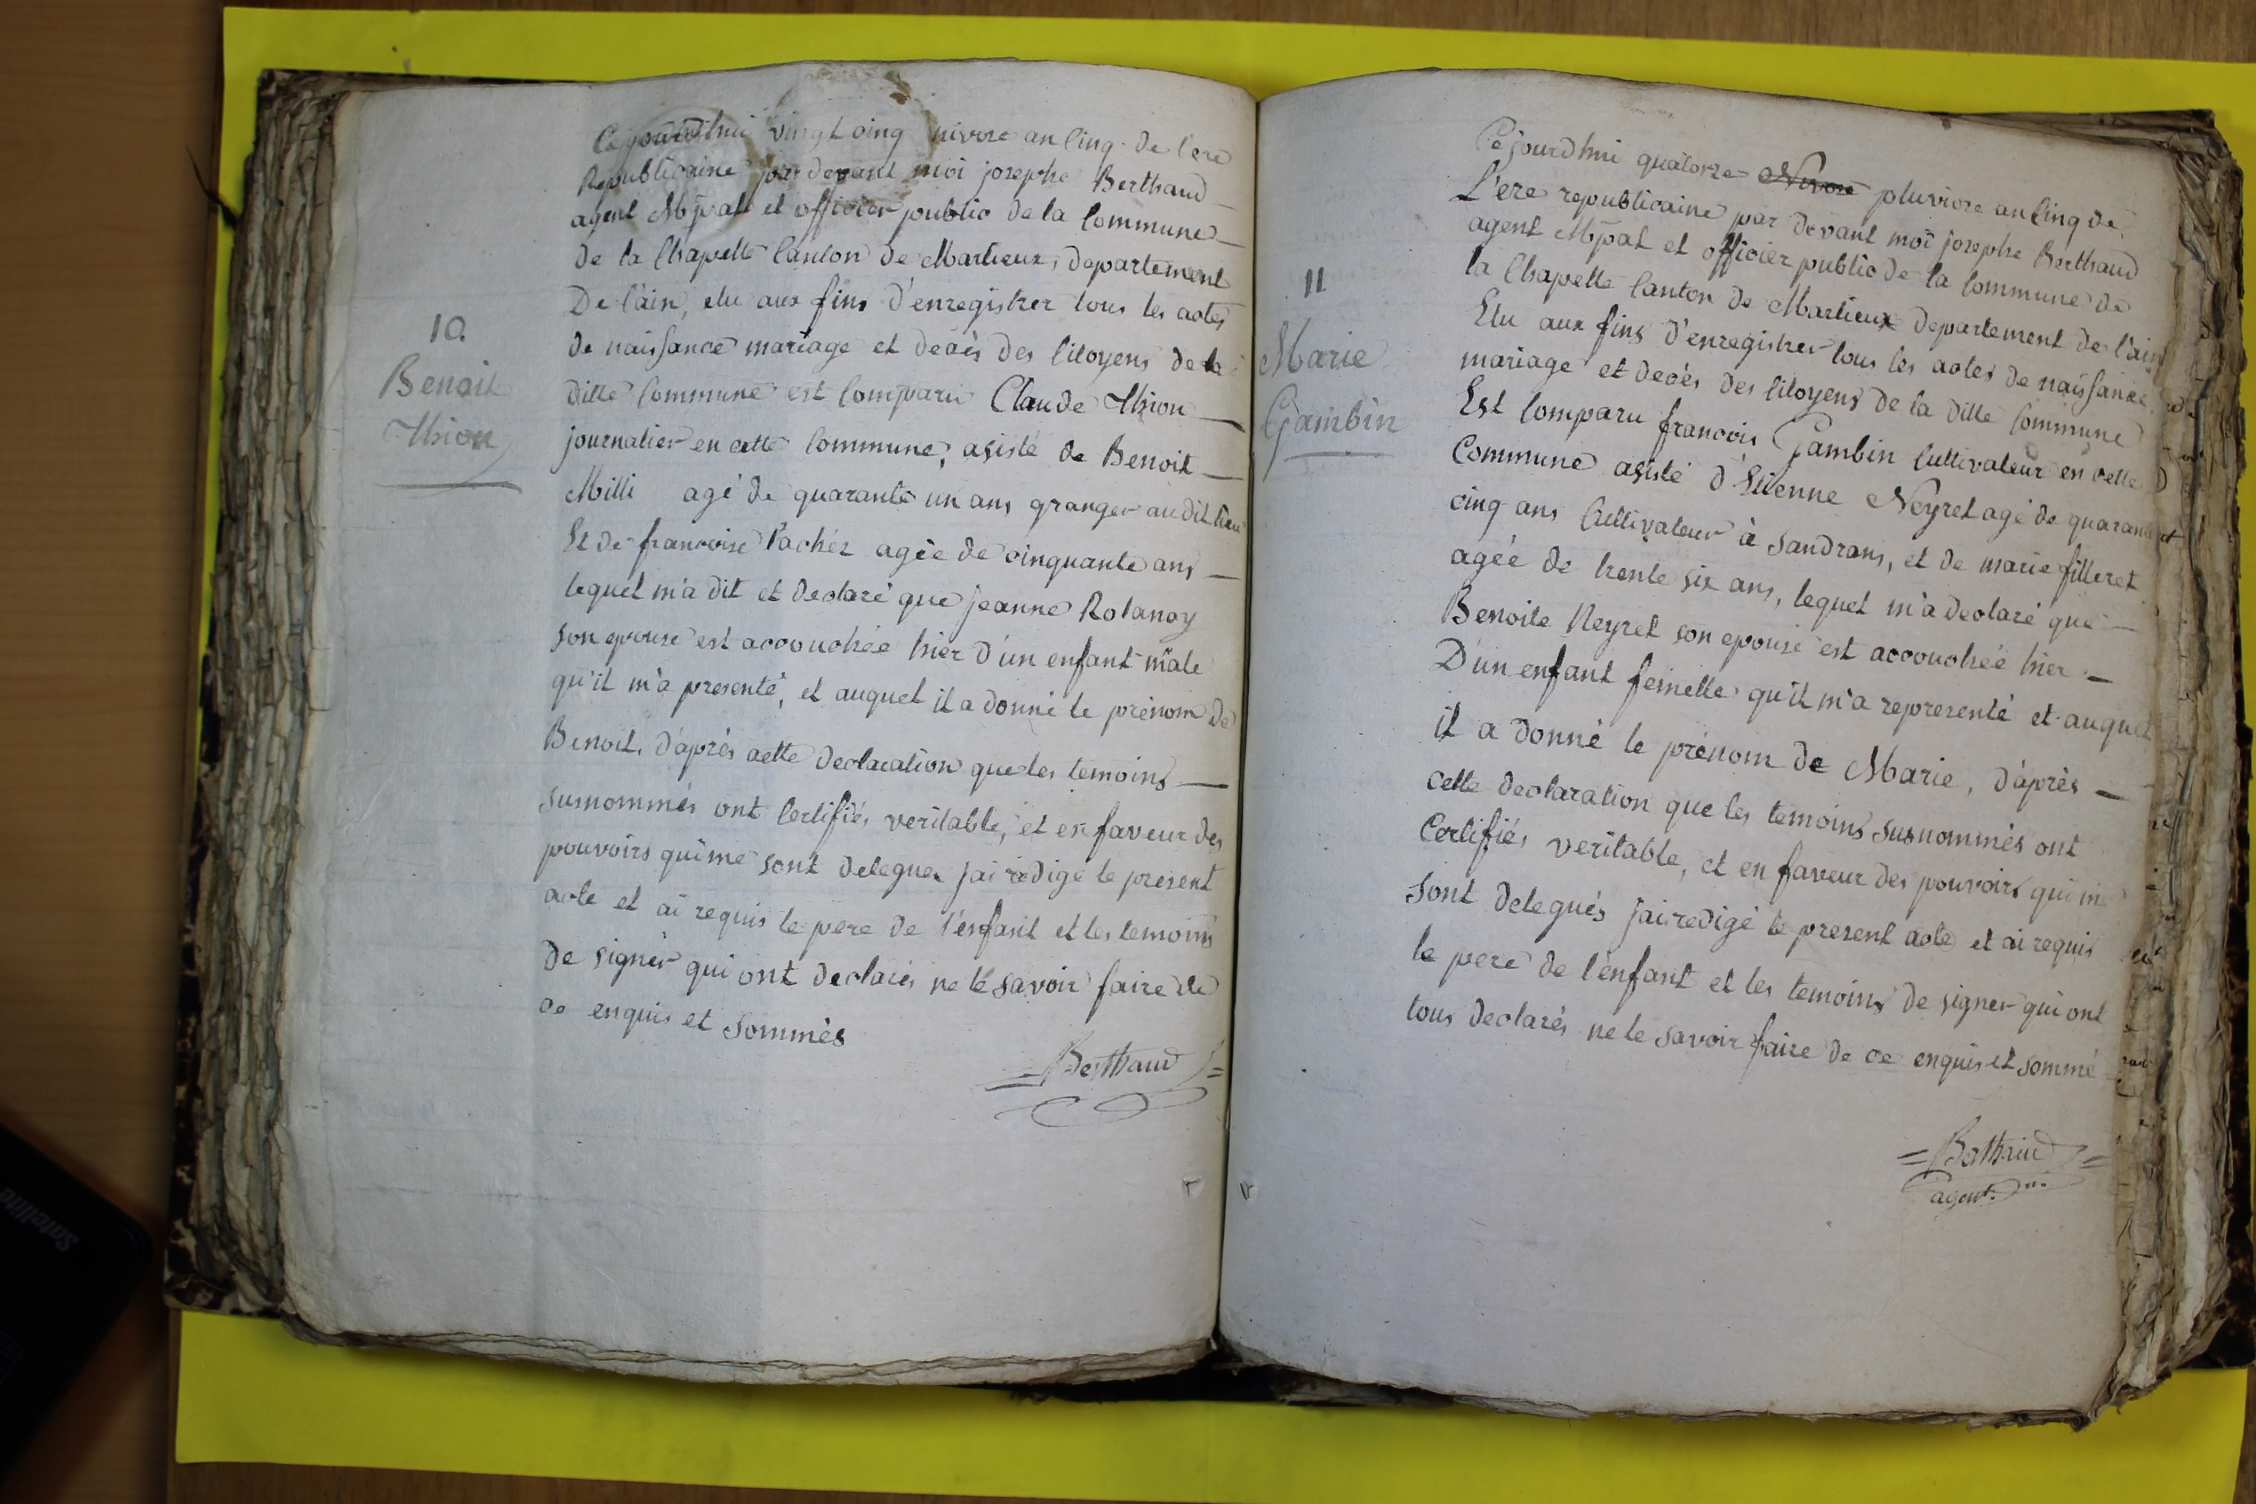 10.
Benoit
Thion
Cejourdhui vingt cinq nivose an Cinq de l'ere
Republicaine par devant moi josephe Berthaud
agent Mpal et officier public de la Commune
de la Chapelle Canton de Marlieux, departement
De l'ain, elu aux fins d'enregistrer tous les actes
de naissance mariage et decès des Citoyens de la
ditte Commune est Comparu Claude Thion
journalier en cette Commune, asisté de Benoit
Milli agé de quarante un ans granger audit lieu
Et de francoise Pachéz agée de cinquante ans
lequel m'a dit et declaré que jeanne Rolanay
son epouse est accouchée hier d'un enfant mâle
qu'il m'a presenté, et auquel il a donné le prénom de
Benoit, d'après cette declaration que les temoins
susnommés ont Certifiés veritable, et en faveur des
pouvoirs qui me sont delegues jai redigé le present
acte et ai requis le pere de l'enfant et les temoins
de signer qui ont declarés ne le savoir faire de
ce enquis et sommés
Berthaud
11
Marie
Gambin
Cejourdhui quatorze Nivose pluviose an Cinq de
L'ere republicaine par devant moi josephe Berthaud
agent Mpal et officier public de la Commune de
la Chapelle Canton de Marlieux departement de l'ain
Elu aux fins d'enregistrer tous les actes de naissance
mariage et decès des Citoyens de la ditte Commune
Est Comparu francois Gambin Cultivateur en cette
Commune asisté d'Etienne Neyret agé de quarante
cinq ans Cultivateur à Sandrans, et de marie filleret
agée de trente six ans, lequel m'a declaré que
Benoite Neyret son epouse est accouchée hier
D'un enfant femelle qu'il m'a representé et auquel
il a donné le prénom de Marie, d'après
cette declaration que les temoins susnommés ont
Certifiés veritable, et en faveur des pouvoirs qui me
sont delegués jai redigé le present acte et ai requis
le pere de l'enfant et les temoins de signer qui ont
tous declarés ne le savoir faire de ce enquis et sommé
Berthaud
agent